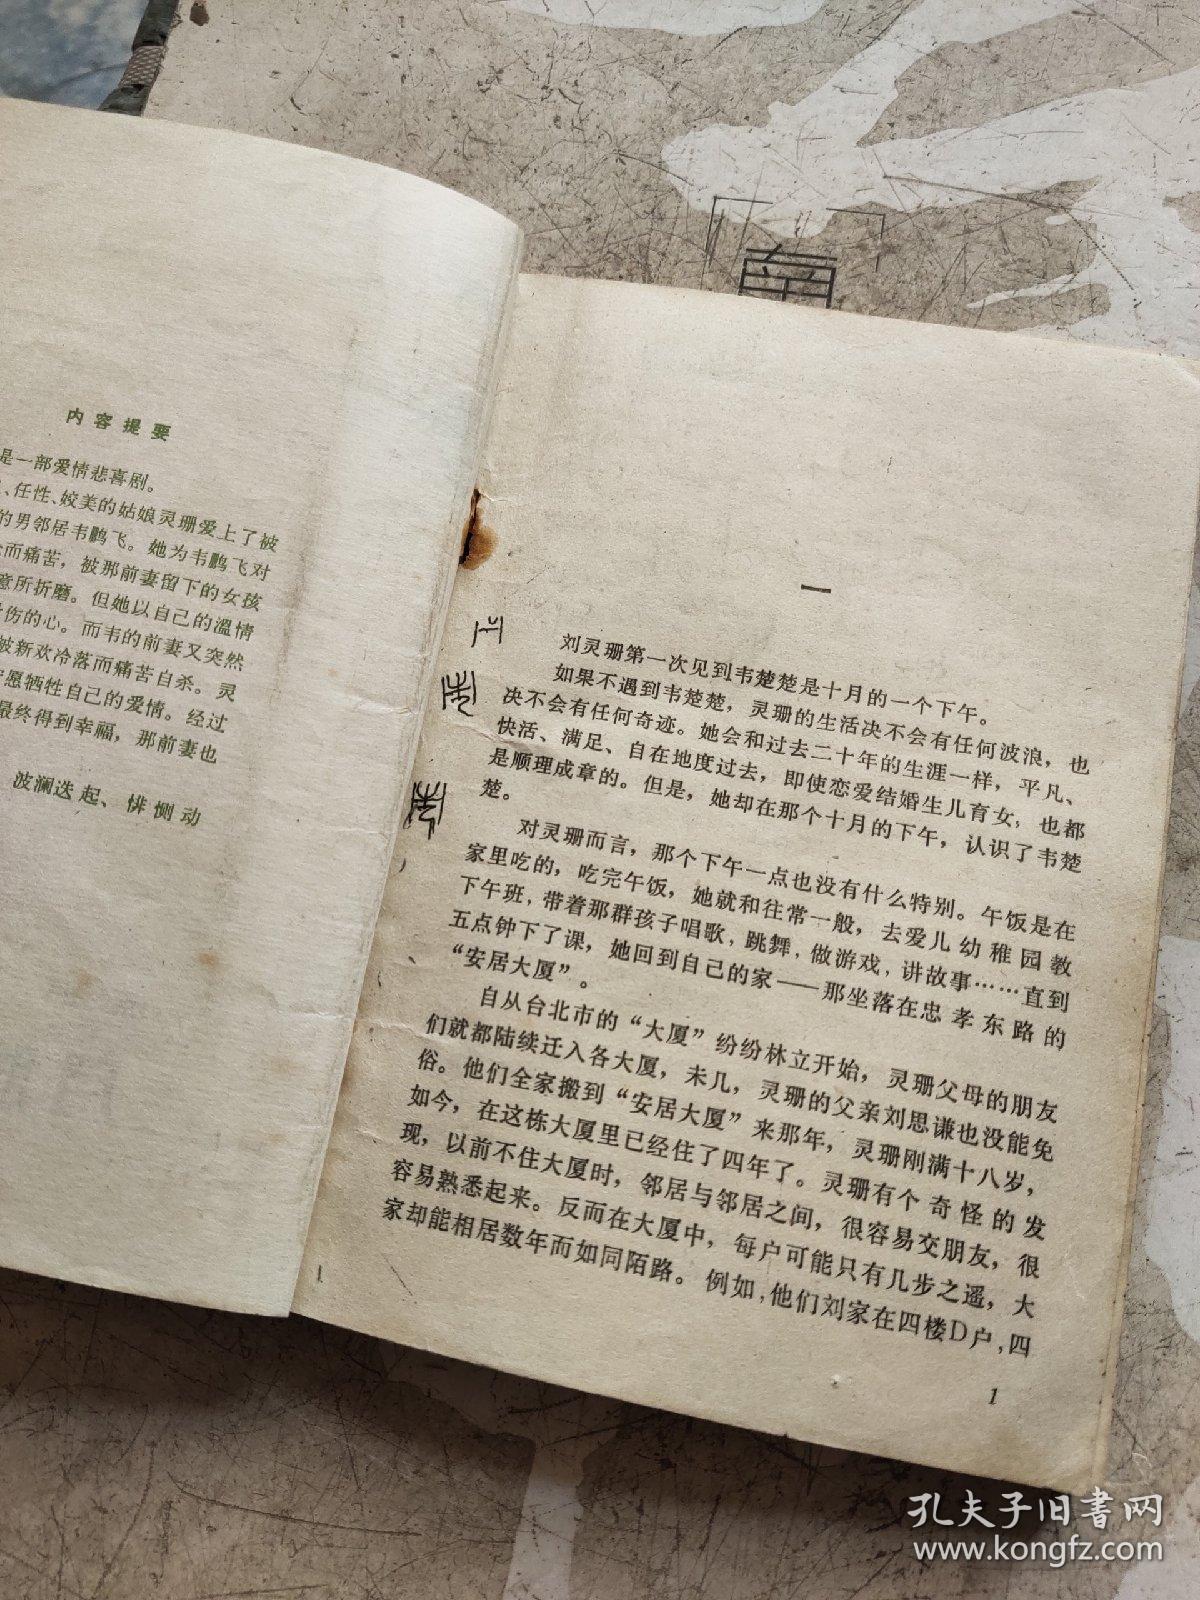 内容提要
是一部爱情悲喜剧。
、任性、姣美的姑娘灵珊爱上了被
的男邻居韦鹏飞。她为韦鹏飞对
而痛苦，被那前妻留下的女孩
意所折磨。但她以自己的温情
伤的心。而韦的前妻又突然
被新欢冷落而痛苦自杀。灵
愿牺牲自己的爱情。经过
最终得到幸福，那前妻也
波澜迭起、悱恻动
一
刘灵珊第一次见到韦楚楚是十月的一个下午。
如果不遇到韦楚楚，灵珊的生活决不会有任何波浪，也
决不会有任何奇迹。她会和过去二十年的生涯一样，平凡、
快活、满足、自在地度过去，即使恋爱结婚生儿育女，也都
是顺理成章的。但是，她却在那个十月的下午，认识了韦楚
楚。
对灵珊而言，那个下午一点也没有什么特别。午饭是在
家里吃的，吃完午饭，她就和往常一般，去爱儿幼稚园教
下午班，带着那群孩子唱歌，跳舞，做游戏，讲故事……直到
五点钟下了课，她回到自己的家——那坐落在忠孝东路的
“安居大厦”。
自从台北市的“大厦”纷纷林立开始，灵珊父母的朋友
们就都陆续迁入各大厦，未几，灵珊的父亲刘思谦也没能免
俗。他们全家搬到“安居大厦”来那年，灵珊刚满十八岁，
如今，在这栋大厦里已经住了四年了。灵珊有个奇怪的发
现，以前不住大厦时，邻居与邻居之间，很容易交朋友，很
容易熟悉起来。反而在大厦中，每户可能只有几步之遥，大
家却能相居数年而如同陌路。例如，他们刘家在四楼D户，四
1
孔夫子旧书网
www.kongfz.com